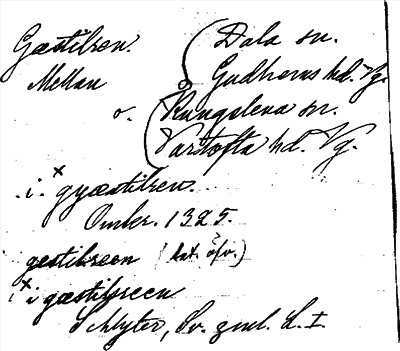 Gæstilren.
Mellan
Dala sn.
Gudhems hd. Vg.
o. Kungslena sn.
Vartofta hd. Vg.
i. x gyæstilren.
Omkr. 1325.
gestilreen (lat. öfv.)
x i gæstilreen
Schlyter, Sv. gml. L. I